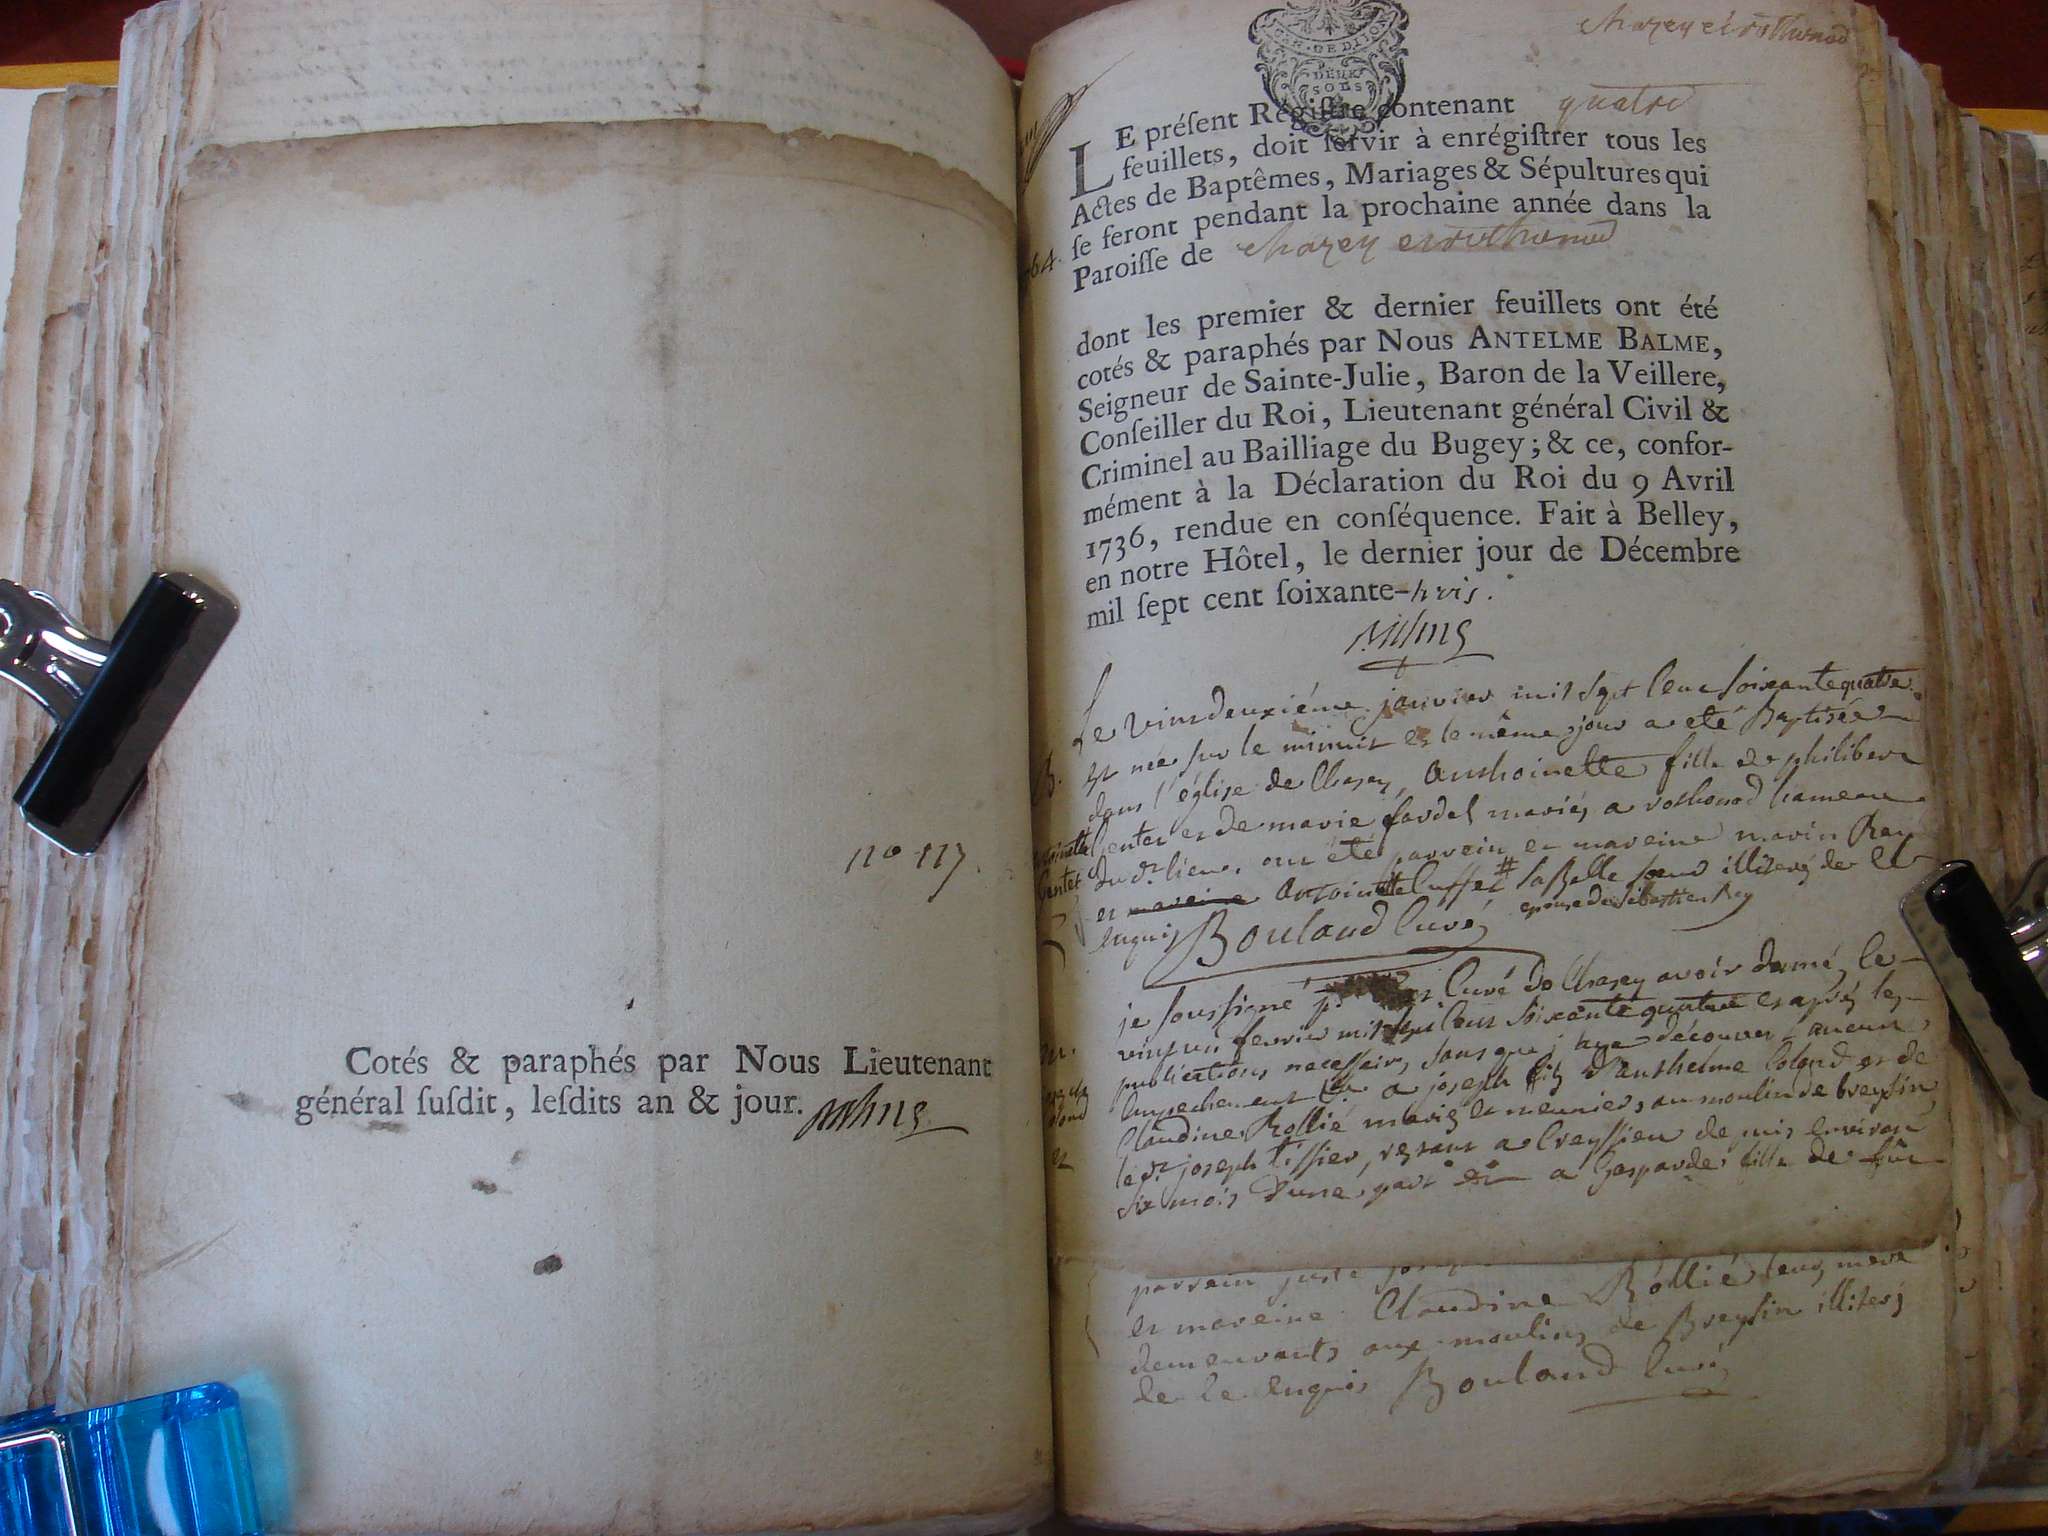 no 117.
Cotés & paraphés par Nous Lieutenant
général ſuſdit, leſdits an & jour.
GEN. DE DIJON
DEUX
SOLS
LE préſent Régiſtre contenant quatre
feuillets, doit ſervir à enrégiſtrer tous les
Actes de Baptêmes, Mariages & Sépultures qui
ſe feront pendant la prochaine année dans la
Paroiſſe de Chazey et rothonod
dont les premier & dernier feuillets ont été
cotés & paraphés par Nous ANTELME BALME,
Seigneur de Sainte-Julie, Baron de la Veillere,
Conſeiller du Roi, Lieutenant général Civil &
Criminel au Bailliage du Bugey; & ce, confor-
mément à la Déclaration du Roi du 9 Avril
1736, rendue en conſéquence. Fait à Belley,
en notre Hôtel, le dernier jour de Décembre
mil ſept cent ſoixante-trois.
Le vint deuxiéme janvier mil sept cent soixante quatre
est née sur le minuit et le même jour a eté Baptisée
dans l'église de Chasey, Anthoinette fille de philibert
Gentet et de marie fardel mariés a rothonod hameau
du dt. lieu, ont été parrein et mareine marin Rey
et mareine Antoinette # sa Belle soeur illiterés de ce
enquis Bouland Curé epouse de Sebastien Rey
je soussigné curé de Chasey avoir donné le
vint un fevrier mil sept cent soixante quatre et aprés les
publications necessaires, sans que j'aye découvert aucun
empechement a joseph fils d'Anthelme et de
Claudine Rollié mariés et meuniers au moulin de breysin
le dt. joseph tissier, restant a Creyssieu depuis environ
six mois d'une part a Gasparde fille de
parrein
et mareine Claudine Rollié leur mere
demeurants aux moulins de Breysin illiterés
de ce enquis Bouland Curé